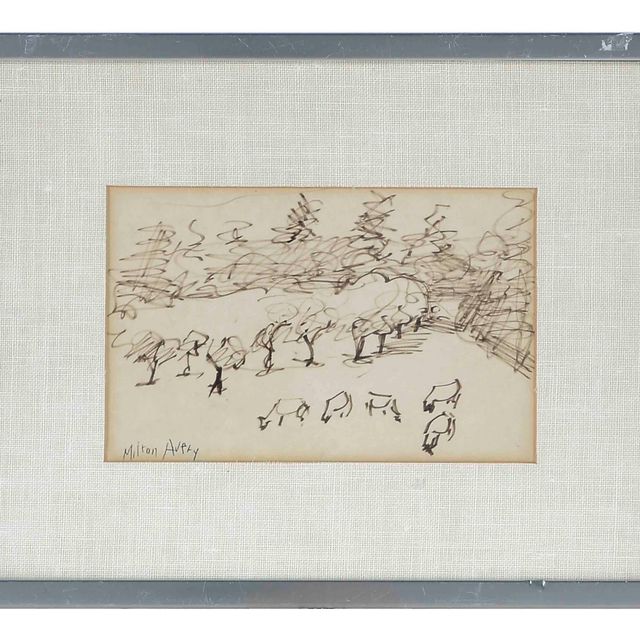 Milton Avery